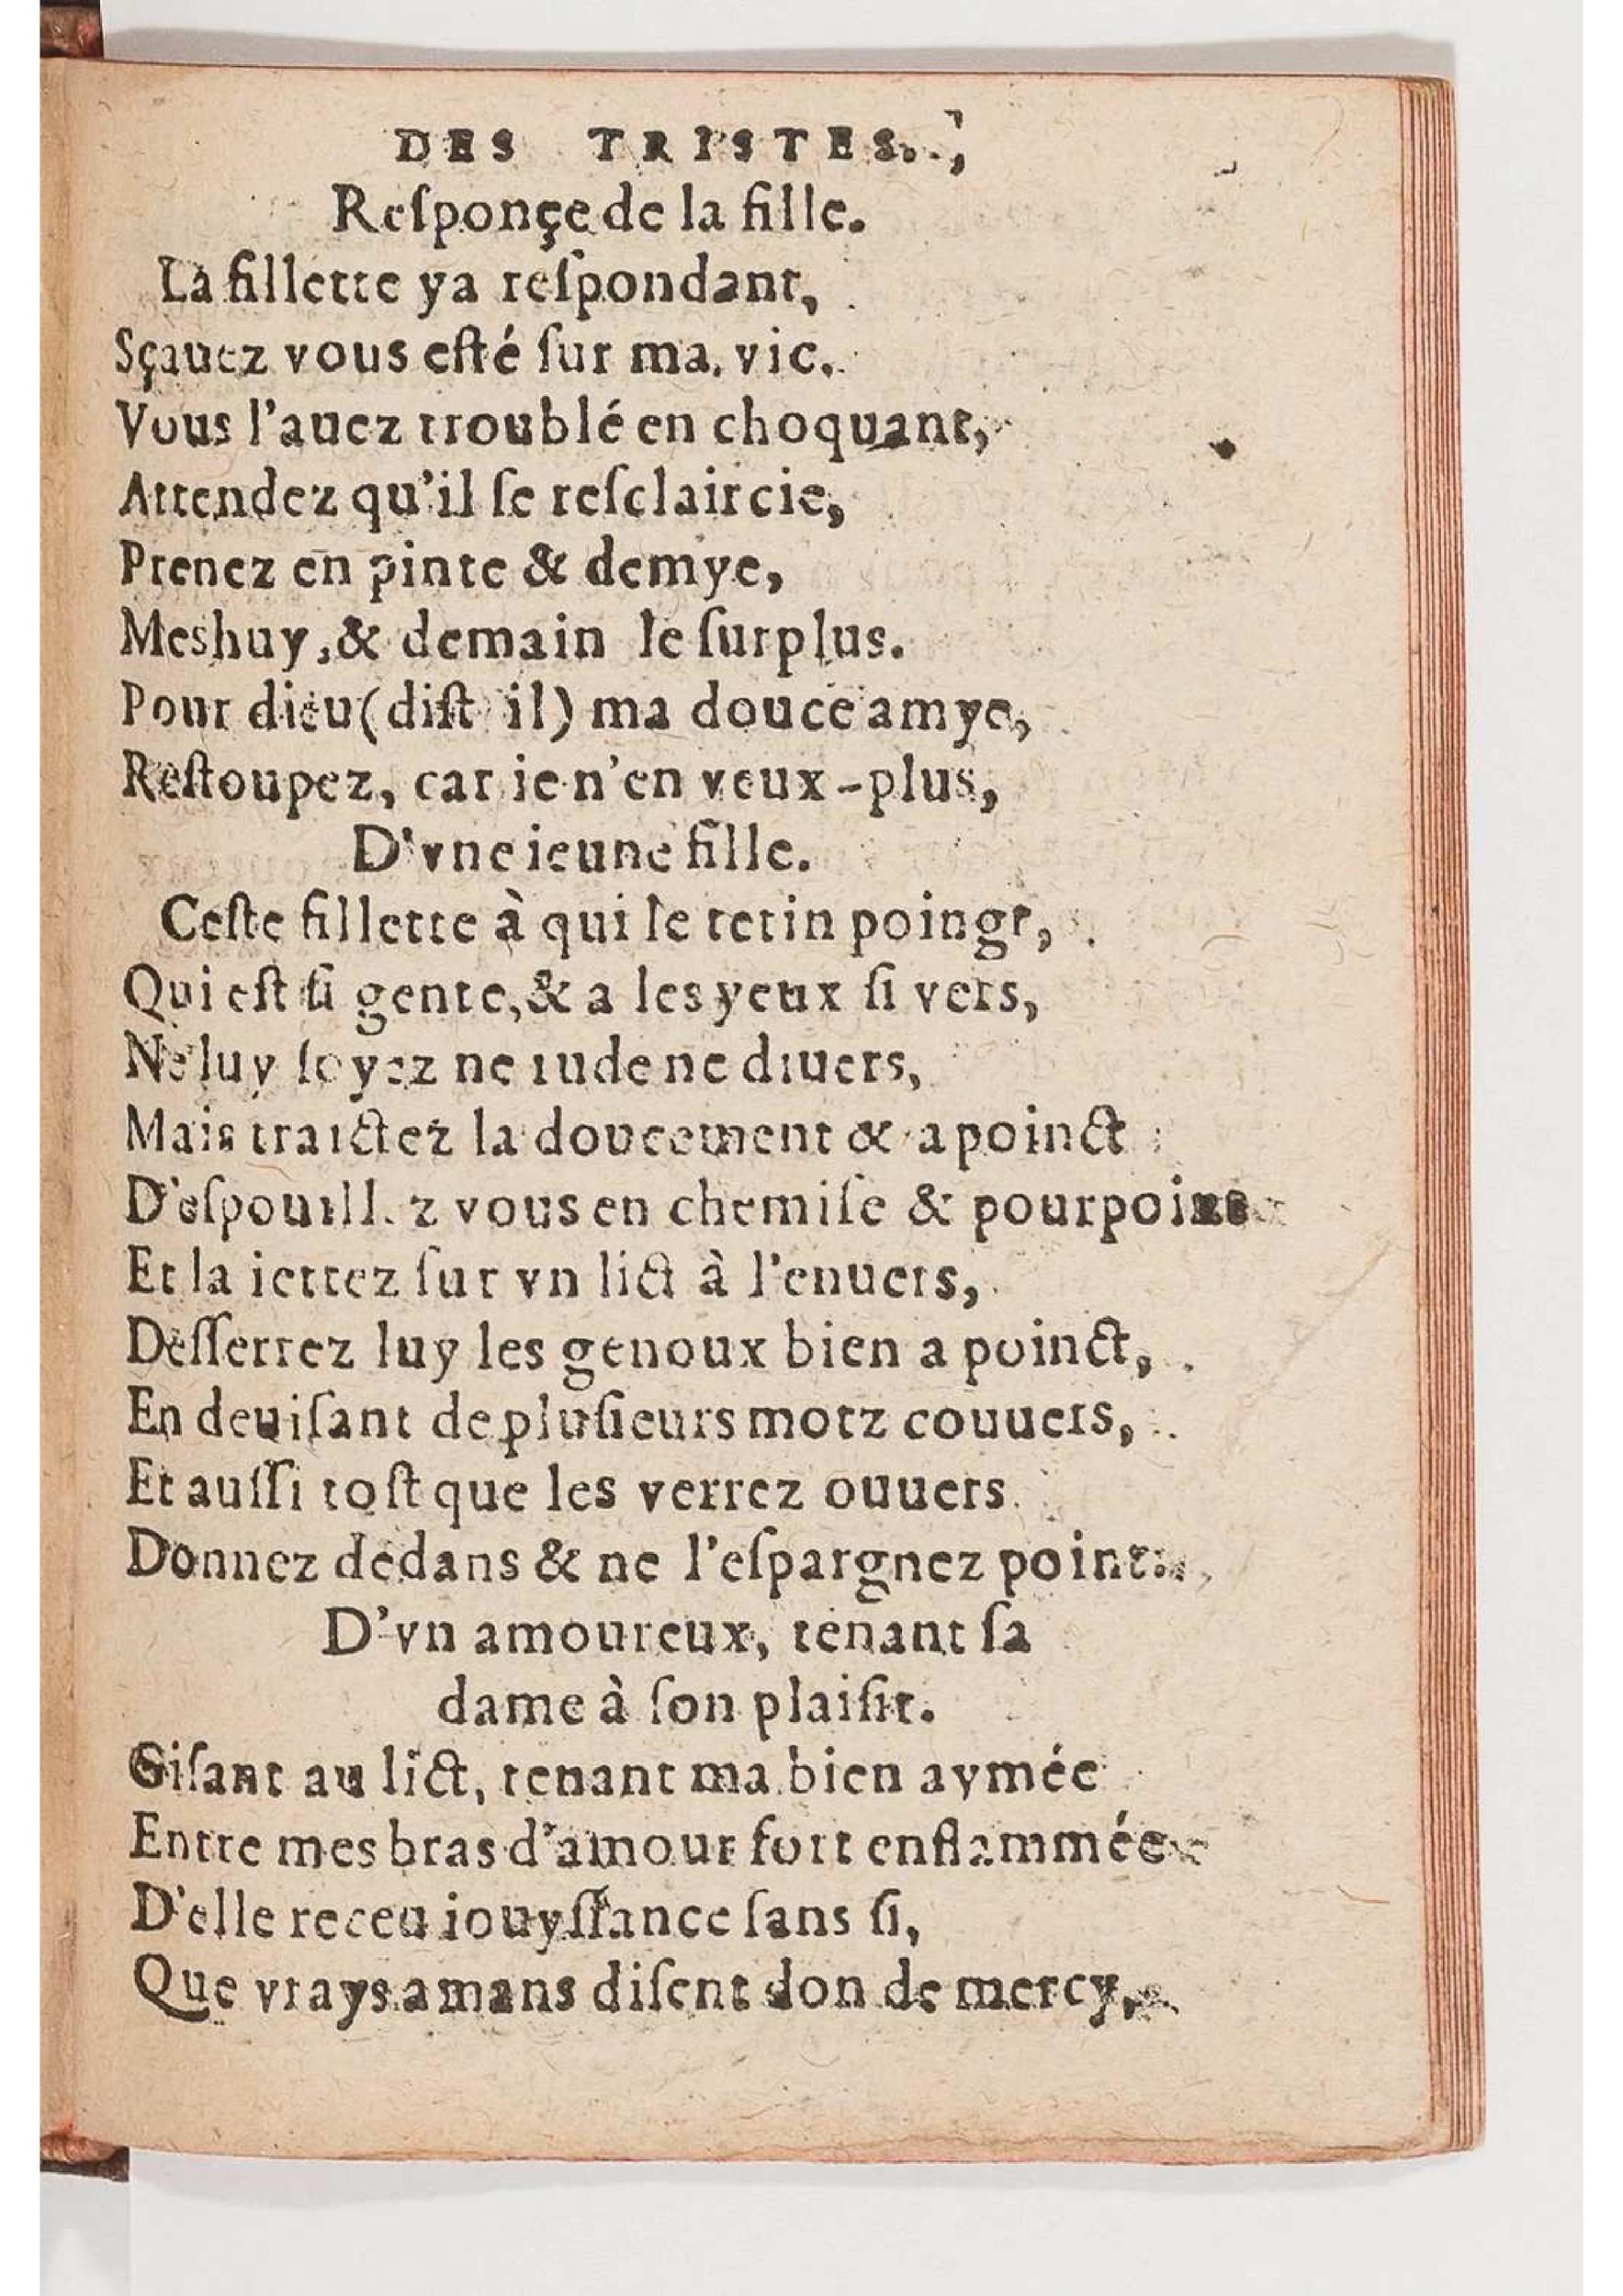 DES TRISTES.
Reſponçe de la fille.
La fillette y a reſpondant,
Sçauez vous eſté ſur ma. vie,
Vous l'auez troublé en choquant,
Attendez qu'il ſe reſclaircie,
Prenez en pinte & demye,
Meshuy, & demain le ſurplus.
Pour dieu (diſt il) ma douce amye,
Reſtoupez, car ie n'en veux-plus,
D'vne ieune fille.
Ceſte fillette à qui le tetin poingt,
Qui eſt ſi gente, & a les yeux ſi vers,
Ne luy ſoyez ne rude ne diuers,
Mais traictez la doucement & a poinct
D'eſpouillez vous en chemiſe & pourpoint
Et la iettez ſur vn lict à l'enuers,
Deſſerrez luy les genoux bien a poinct,
En deuiſant de pluſieurs motz couuers,
Et auſſi toſt que les verrez ouuers.
Donnez dedans & ne l'eſpargnez point.
D'vn amoureux, tenant ſa
dame à ſon plaiſir.
Giſant au lict, tenant ma bien aymée
Entre mes bras d'amour fort enflammée
D'elle receu iouyſſance ſans ſi,
Que vrays amans diſent don de mercy,